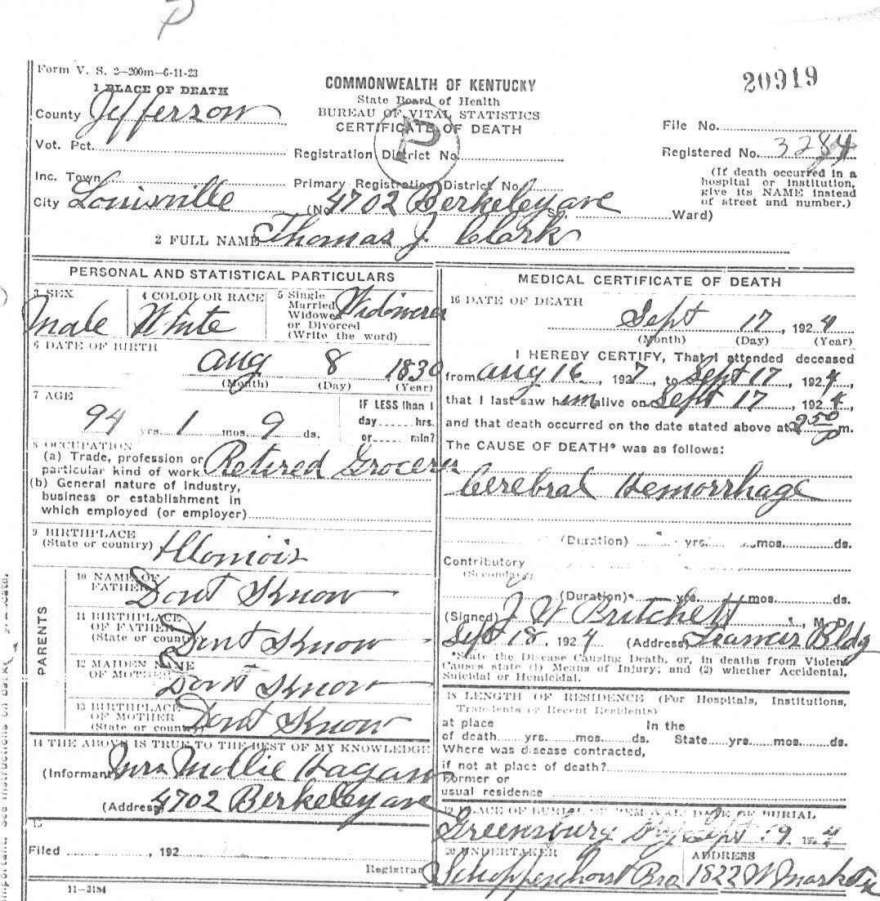 P
Form V. S. 2—200m—6-11-23
20919
1 PLACE OF DEATH
COMMONWEALTH OF KENTUCKY
State Board of Health
BUREAU OF VITAL STATISTICS
CERTIFICATE OF DEATH
P
County Jefferson
Vot. Pct.
Inc. Town
City Louisville
Registration District No.
Primary Registration District No.
(No 4702 Berkeley ave
Ward)
File No.
Registered No. 3284
(If death occurred in a
hospital or institution,
give its NAME instead
of street and number.)
2 FULL NAME Thomas J. Clark
PERSONAL AND STATISTICAL PARTICULARS
3 SEX
Male
4 COLOR OR RACE
White
5 Single
Married
Widowed
or Divorced
(Write the word)
Widower
6 DATE OF BIRTH
Aug 8 1830
(Month) (Day) (Year)
7 AGE
94 yrs. 1 mos. 9 ds.
IF LESS than 1
day hrs.
or min?
8 OCCUPATION
(a) Trade, profession or
particular kind of work Retired Grocer
(b) General nature of Industry,
business or establishment in
which employed (or employer)
9 BIRTHPLACE
(State or country)
PARENTS
10 NAME OF
FATHER Dont Know
11 BIRTHPLACE
OF FATHER
(State or country) Dont Know
12 MAIDEN NAME
OF MOTHER Dont Know
13 BIRTHPLACE
OF MOTHER
(State or country) Dont Know
14 THE ABOVE IS TRUE TO THE BEST OF MY KNOWLEDGE
(Informant Mrs Mollie Hagan
(Address) 4702 Berkeley ave
15
Filed , 192
Registrar
11—3184
MEDICAL CERTIFICATE OF DEATH
16 DATE OF DEATH
Sept 17, 1924
(Month) (Day) (Year)
I HEREBY CERTIFY, That I attended deceased
from Aug 16, 192 , to Sept 17, 1924,
that I last saw him alive on Sept 17, 1924,
and that death occurred on the date stated above at m.
The CAUSE OF DEATH* was as follows:
Cerebral Hemorrhage
(Duration) yrs. mos. ds.
Contributory
(Secondary)
(Duration) yrs. mos. ds.
(Signed) J W Pritchett M
Sept 18, 1924 (Address) Bldg
*State the Disease Causing Death, or, in deaths from Violent
Causes state (1) Means of Injury; and (2) whether Accidental,
Suicidal or Homicidal.
18 LENGTH OF RESIDENCE (For Hospitals, Institutions,
Transients or Recent Residents)
at place In the
of death yrs. mos. ds. State yrs. mos. ds.
Where was disease contracted,
if not at place of death?
Former or
usual residence
19 PLACE OF BURIAL OR REMOVAL DATE OF BURIAL
Greensburg Ky Sept 19 192 4
20 UNDERTAKER ADDRESS
Schoppenhorst Bro 1822 W Market